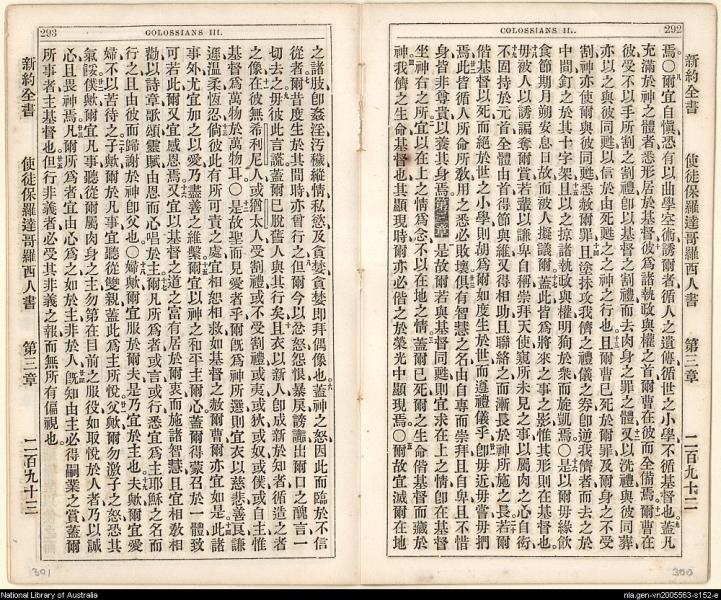 292
COLOSSIANS II.
新約全書 使徒保羅達哥羅西人書 第三章 二百九十二
焉○爾宜自愼恐有以曲學空術誘爾者循人之遺傳循世之小學不循基督也蓋凡
充滿於神之體者悉形居於基督彼爲諸執政與權之首爾曹在彼而全備焉爾曹在
彼受不以手所割之割禮卽以基督之割禮而去肉身之罪之體又以洗禮與彼同葬
亦以之與彼同甦以信於由死甦之之神之行也且爾曹已死於爾罪及爾身之不受
割神亦使爾與彼同甦悉赦爾罪且塗抹攻我儕之禮儀之券卽逆我儕者而去之於
中間釘之於其十字架且以之掠諸執政與權明狥於衆而旋凱焉○是以爾毋緣飲
食節期月朔安息日故而被人擬議爾蓋此皆爲將來之事之影惟其形則在基督也
毋被人以誘騙奪爾賞若輩以謙卑自稱崇拜天使窺所未見之事以屬肉之心自衒
不固持於元首全體由首得節與維又得相助且聯絡之而漸長於神所施之長若爾
偕基督以死而絕於世之小學則胡爲爾如度生於世而遵禮儀乎卽毋近毋嘗毋捫
焉此皆循人所命所敎用之悉必敗壞俱有智慧之名由自專而崇拜且自卑且不惜
身皆非尊貴以養其身焉第三章是故爾若與基督同甦則宜求在上之情卽在基督
坐神右之所宜以在上之情爲念不以在地之情蓋爾已死爾之生命偕基督而藏於
神我儕之生命基督也其顯現時爾亦必偕之於榮光中顯現焉○爾故宜滅爾在地
300
293
COLOSSIANS III.
之諸肢卽姦淫汚穢縱情私慾及貪婪貪婪卽拜偶像也蓋神之怒因此而臨於不信
從者爾昔度生於其間時亦曾行之但爾今以忿怒怨恨暴戾謗讟出爾口之醜言一
切去之毋彼此言謊蓋爾已脫舊人與其行矣且衣以新人卽成新於知者循造之者
之像在彼無希利尼人或猶太人受割禮或不受割禮或夷或狄或奴或僕或自主惟
基督爲萬物於萬物耳○是故聖而見愛者乎爾旣爲神所選則宜衣以慈悲善良謙
遜溫柔恆忍倘彼此有所可責之處宜相恕相救如基督之赦爾曹爾亦宜如是此諸
事外尤宜加之以愛乃盡善之維繫爾宜以神之和平主爾心蓋爾得蒙召於一體致
可若此爾又宜感恩焉又宜以基督之道之富有居於爾衷而施諸智慧且宜相敎相
勸以詩章歌頌靈賦由恩而心唱於主爾凡所爲者或言或行悉宜爲主耶穌之名而
行之且由彼而歸謝於神卽父也○婦歟爾宜服於爾夫是乃宜於主也夫歟爾宜愛
婦不以苦待之子歟爾於凡事宜聽從雙親蓋此爲主所悅父歟爾勿激子之怒恐其
氣餒僕歟爾宜凡事聽從爾屬肉身之主勿第在目前之服役如取悅於人者乃以誠
心且畏神焉凡爾所爲者宜由心爲之如於主非於人旣知由主必得嗣業之賞蓋爾
所事者主基督也但行非義者必受其非義之報而無所有偏視也
新約全書 使徒保羅達哥羅西人書 第三章 二百九十三
301
National Library of Australia
nla.gen-vn2005563-s152-e